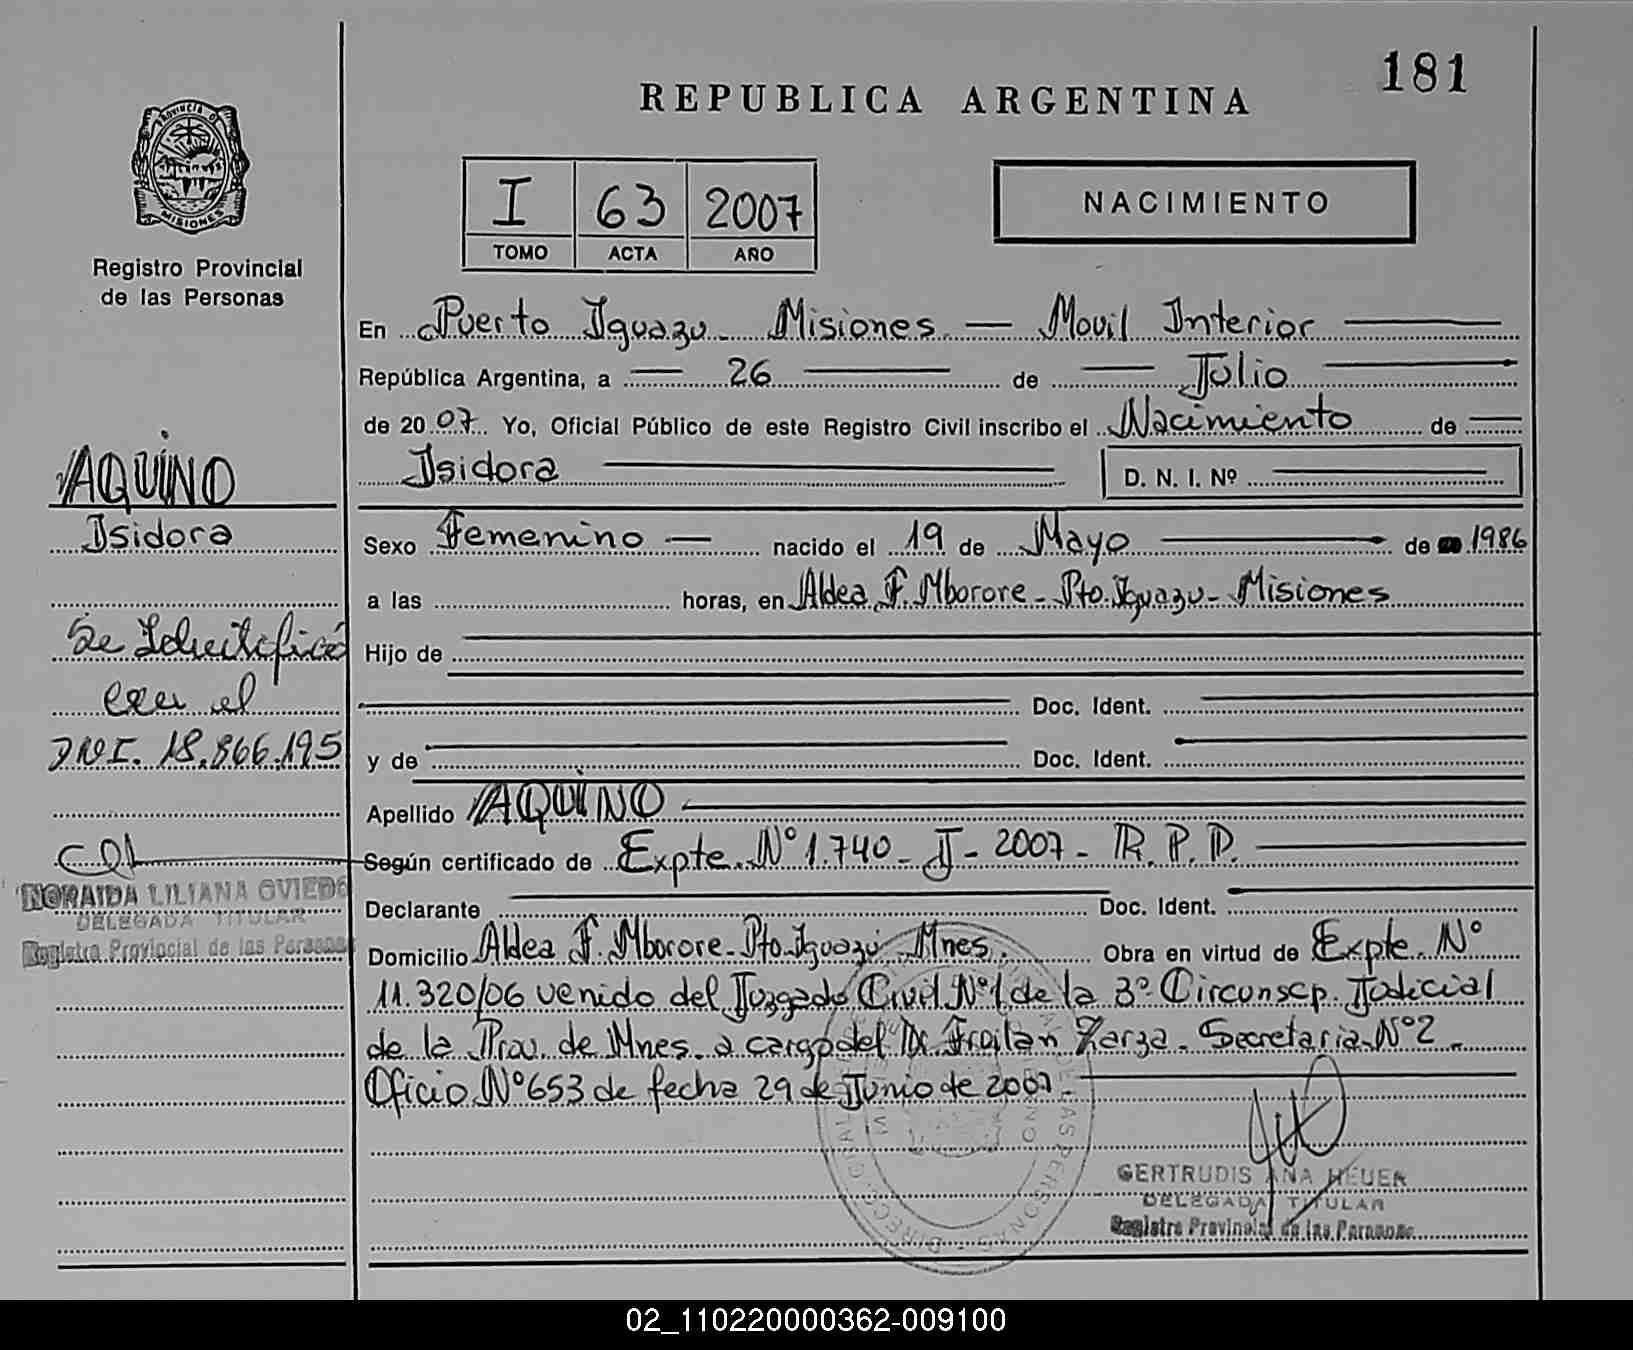 181
REPUBLICA ARGENTINA
PROVINCIA DE
MISIONES
Registro Provincial
de las Personas
I 63 2007
TOMO ACTA AÑO
NACIMIENTO
En Puerto Iguazu Misiones — Movil Interior
República Argentina, a 26 de Julio
de 2007 Yo, Oficial Público de este Registro Civil inscribo el Nacimiento de
Isidora D. N. I. Nº
Sexo Femenino — nacido el 19 de Mayo de 1986
a las horas, en Aldea F. Mborore - Pto. Iguazu - Misiones
Hijo de
Doc. Ident.
y de Doc. Ident.
Apellido AQUINO
Según certificado de Expte. Nº 1.740 - J - 2007 - R. P. P.
Declarante Doc. Ident.
Domicilio Aldea F. Mborore - Pto. Iguazu Mnes. Obra en virtud de Expte. Nº
11.320/06 venido del Juzgado Civil Nº 1 de la 3º Circunscp. Judicial
de la Prov. de Mnes. a cargo del Dr. Froilan Zarza - Secretaria Nº 2 -
Oficio Nº 653 de fecha 29 de Junio de 2007 -
GERTRUDIS ANA HEUER
DELEGADA TITULAR
Registro Provincial de las Personas
AQUINO
Isidora
Se
el
DNI. 18.866.195
NORAIDA LILIANA OVIEDO
DELEGADA TITULAR
Registro Provincial de las Personas
02_110220000362-009100